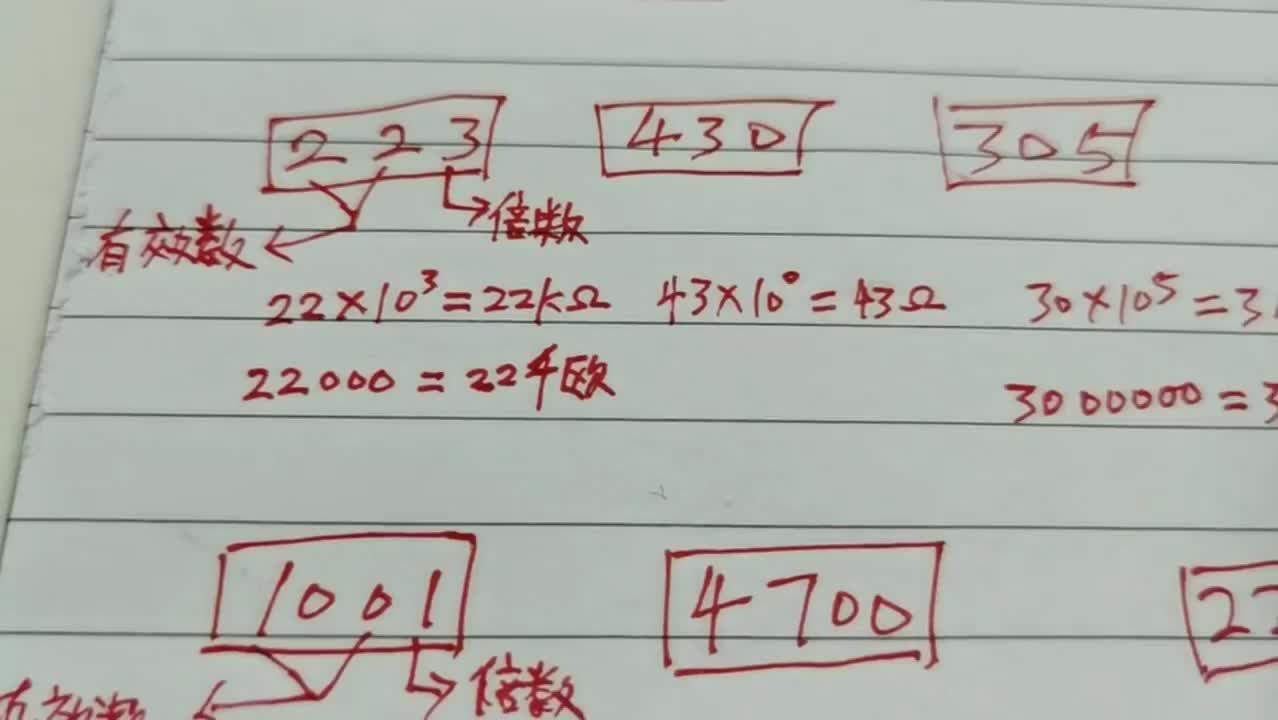 223 430 305
有效数 倍数
22×10³=22kΩ 43×10⁰=43Ω 30×10⁵=3
22000=22千欧 3000000=3
1001 4700 22
有效数 倍数